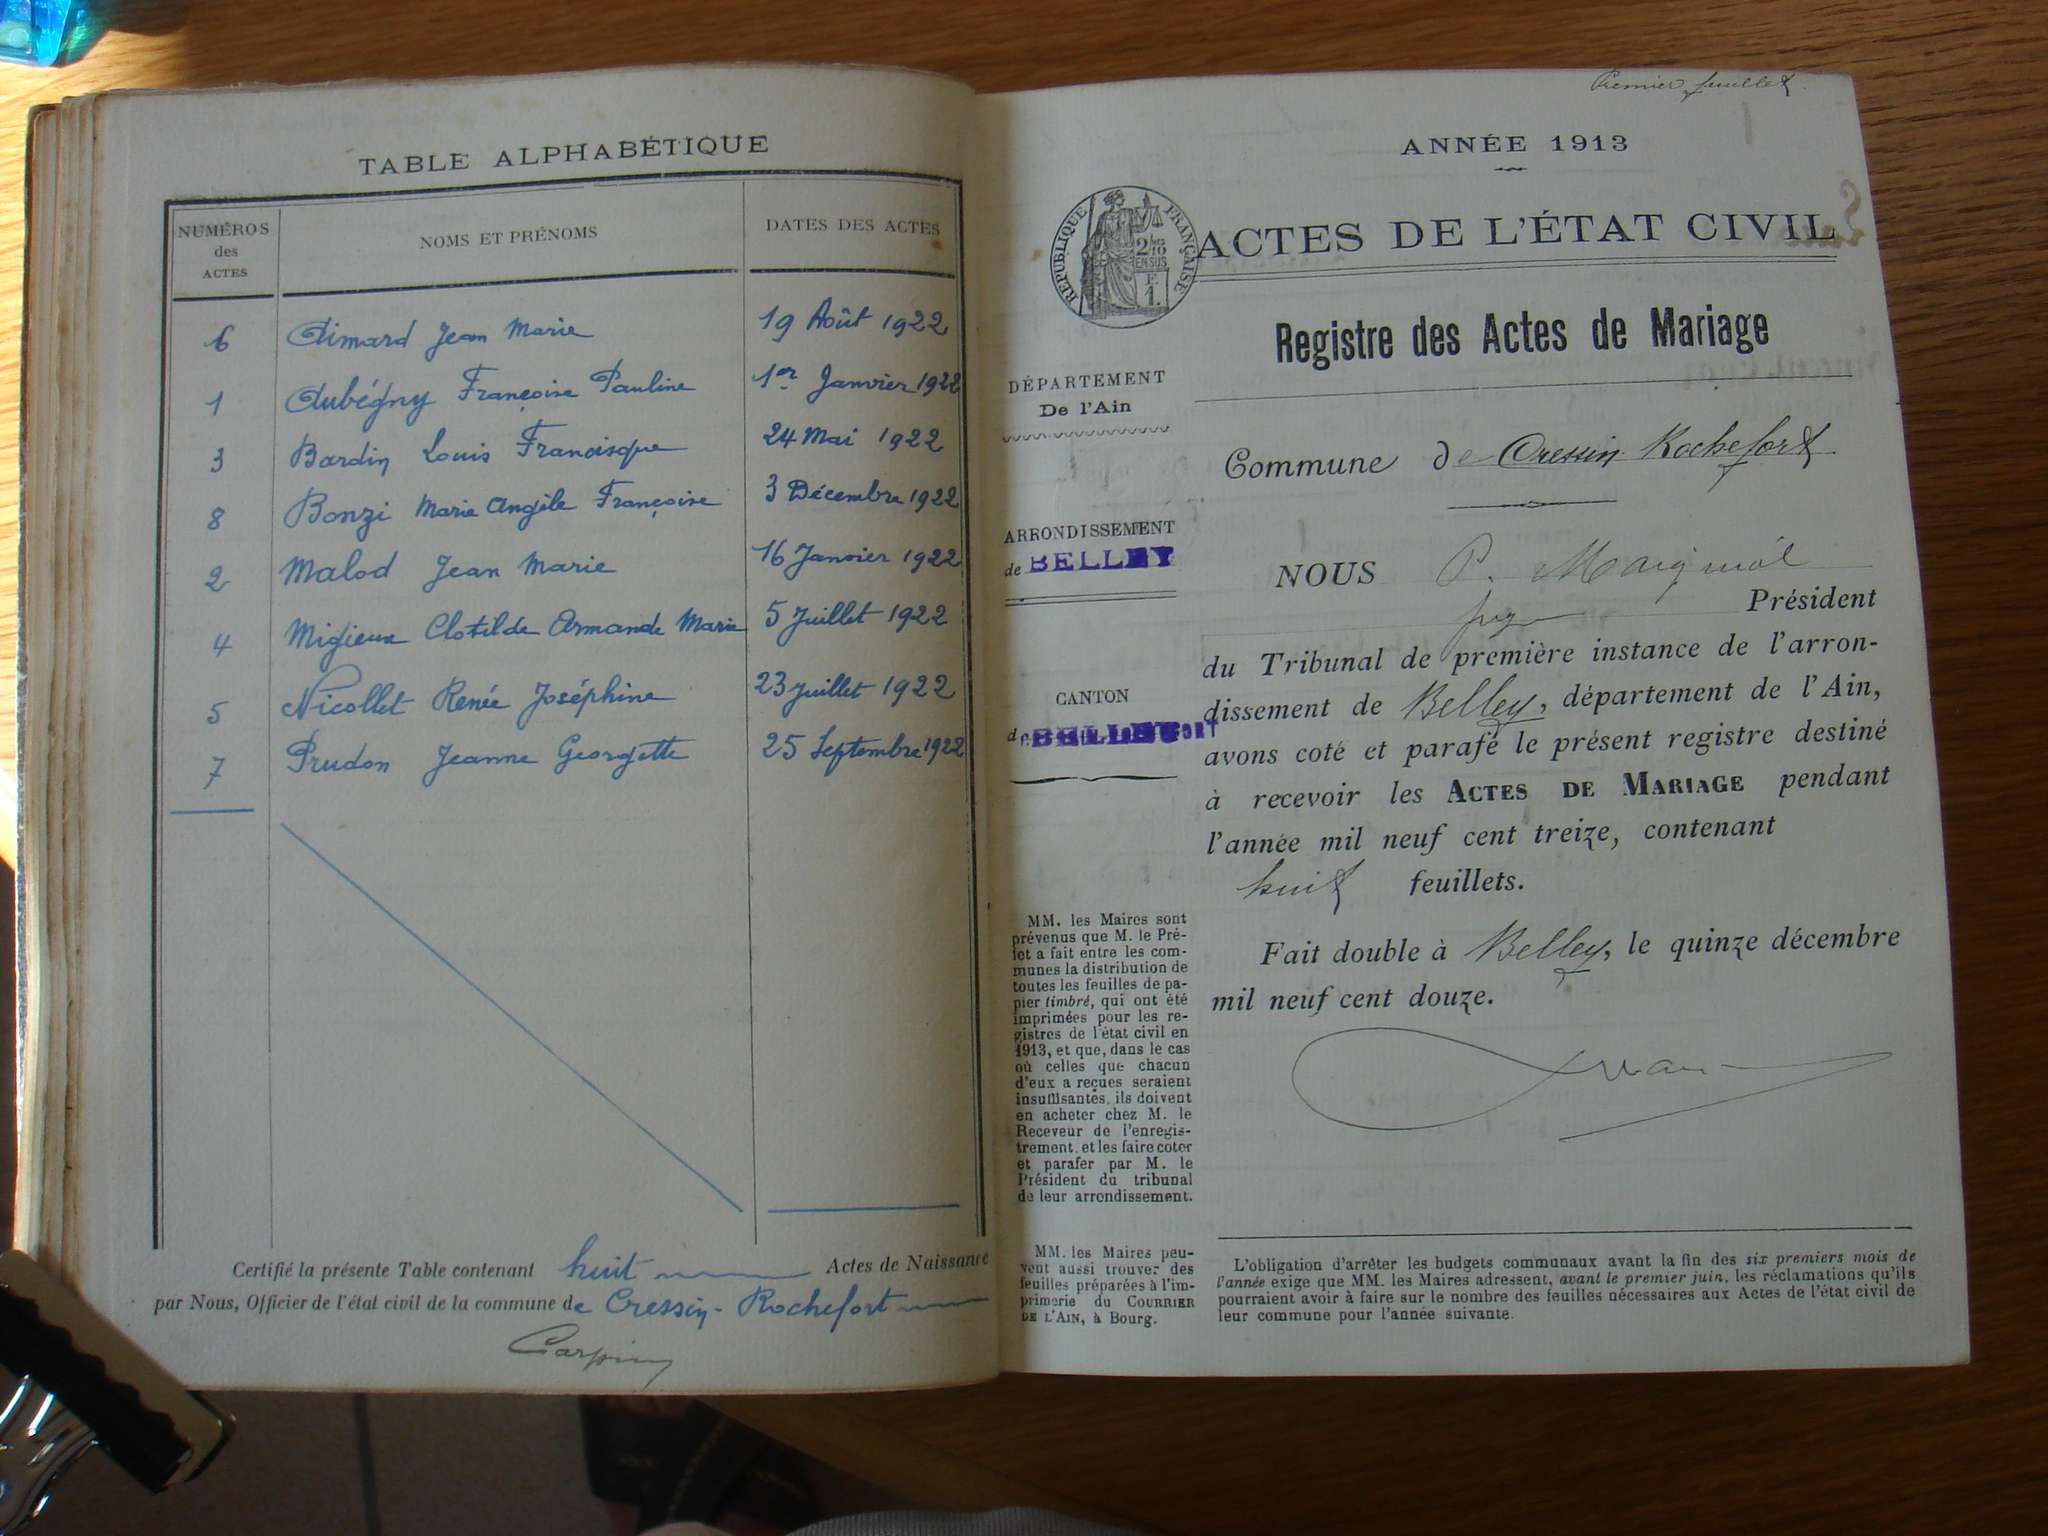 TABLE ALPHABÉTIQUE
NUMÉROS des ACTES NOMS ET PRÉNOMS DATES DES ACTES
6 Aimard Jean Marie 19 Août 1922
1 Aubégny Françoise Pauline 1er Janvier 1922
3 Bardin Louis Francisque 24 Mai 1922
8 Bonzi Marie Angèle Françoise 3 Décembre 1922
2 Malod Jean Marie 16 Janvier 1922
4 Migieux Clotilde Armande Marie 5 Juillet 1922
5 Nicollet Renée Joséphine 23 Juillet 1922
7 Prudon Jeanne Georgette 25 Septembre 1922
Certifié la présente Table contenant huit Actes de Naissance
par Nous, Officier de l'état civil de la commune de Cressin-Rochefort
Carpin
Premier feuillet
ANNÉE 1913
RÉPUBLIQUE FRANÇAISE
2/10 EN SUS
F. 1.
ACTES DE L'ÉTAT CIVIL
Registre des Actes de Mariage
DÉPARTEMENT
De l'Ain
Commune de Cressin Rochefort
ARRONDISSEMENT
de BELLEY
CANTON
NOUS P.
juge Président
du Tribunal de première instance de l'arron-
dissement de Belley, département de l'Ain,
avons coté et parafé le présent registre destiné
à recevoir les ACTES DE MARIAGE pendant
l'année mil neuf cent treize, contenant
huit feuillets.
Fait double à Belley, le quinze décembre
mil neuf cent douze.
MM. les Maires sont
prévenus que M. le Pré-
fet a fait entre les com-
munes la distribution de
toutes les feuilles de pa-
pier timbré, qui ont été
imprimées pour les re-
gistres de l'état civil en
1913, et que, dans le cas
où celles que chacun
d'eux a reçues seraient
insuffisantes, ils doivent
en acheter chez M. le
Receveur de l'enregis-
trement, et les faire coter
et parafer par M. le
Président du tribunal
de leur arrondissement.
MM. les Maires peu-
vent aussi trouver des
feuilles préparées à l'im-
primerie du COURRIER
DE L'AIN, à Bourg.
L'obligation d'arrêter les budgets communaux avant la fin des six premiers mois de
l'année exige que MM. les Maires adressent, avant le premier juin, les réclamations qu'ils
pourraient avoir à faire sur le nombre des feuilles nécessaires aux Actes de l'état civil de
leur commune pour l'année suivante.